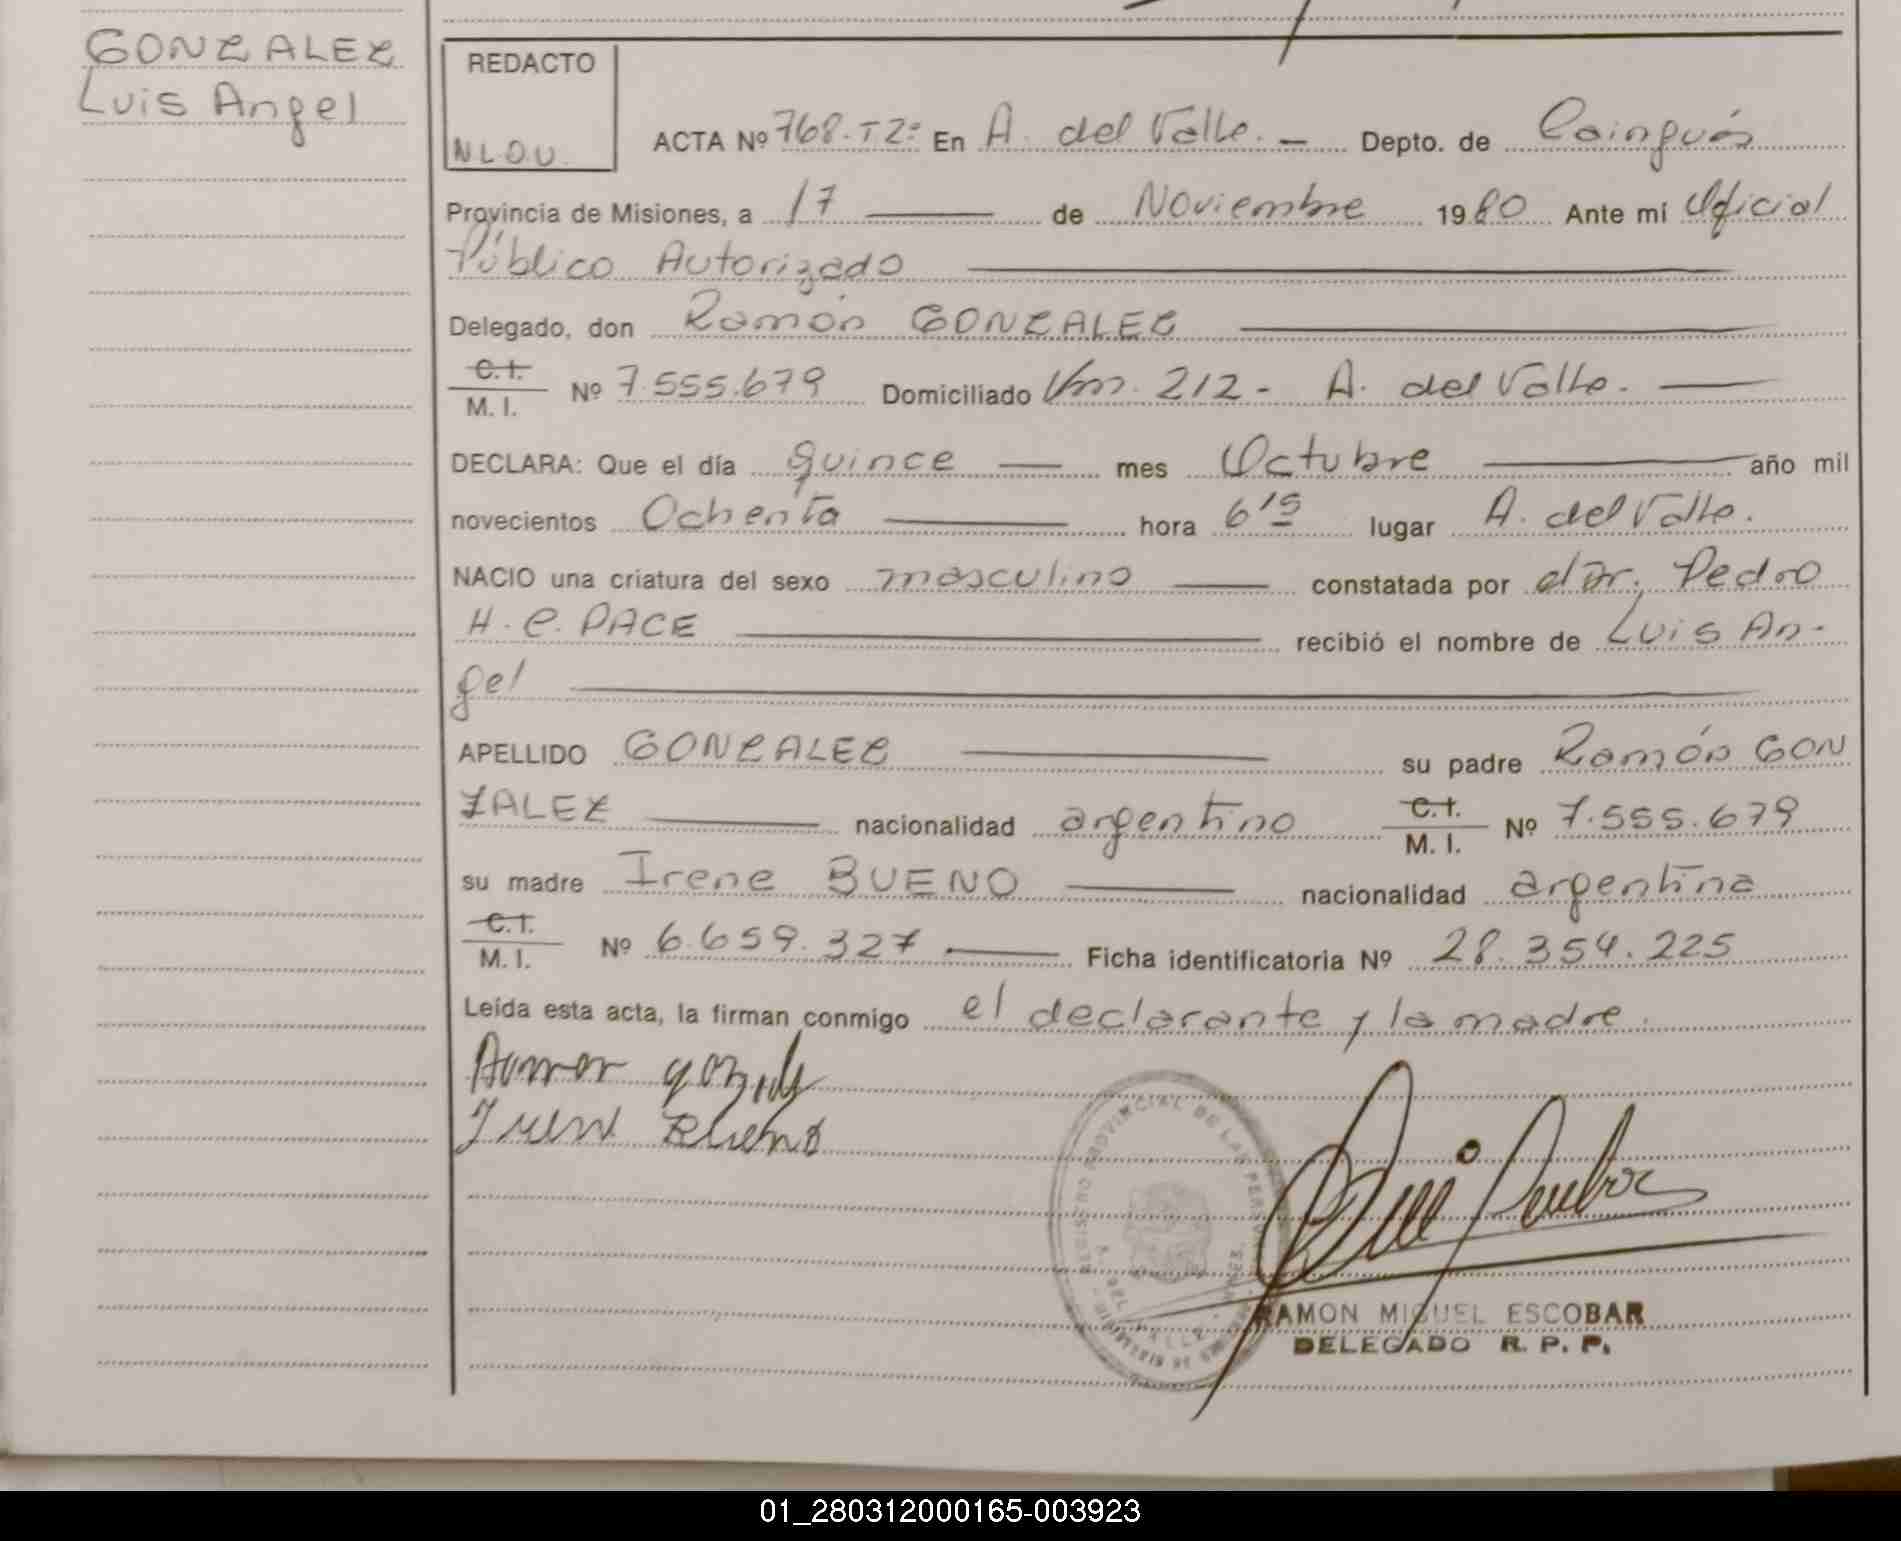 GONZALEZ
Luis Angel
REDACTO
N.L.O.U.
ACTA Nº 768-T2º En A. del Valle. — Depto. de Cainguás
Provincia de Misiones, a 17 — de Noviembre 1980 Ante mí Oficial
Público Autorizado
Delegado, don Ramón GONZALEZ
C.I. M.I. Nº 7.555.679 Domiciliado Km. 212 - A. del Valle.
DECLARA: Que el día quince — mes Octubre — año mil
novecientos Ochenta — hora 6 15 lugar A. del Valle.
NACIO una criatura del sexo masculino — constatada por el Dr. Pedro
H. C. PACE — recibió el nombre de Luis An-
gel
APELLIDO GONZALEZ — su padre Ramón GON
ZALEZ — nacionalidad argentino C.I. M.I. Nº 7.555.679
su madre Irene BUENO — nacionalidad argentina
C.I. M.I. Nº 6.659.327 — Ficha identificatoria Nº 28.354.225
Leída esta acta, la firman conmigo el declarante y la madre.
REGISTRO PROVINCIAL DE LAS PERSONAS
A. DEL VALLE
RAMON MIGUEL ESCOBAR
DELEGADO R. P. P.
01_280312000165-003923